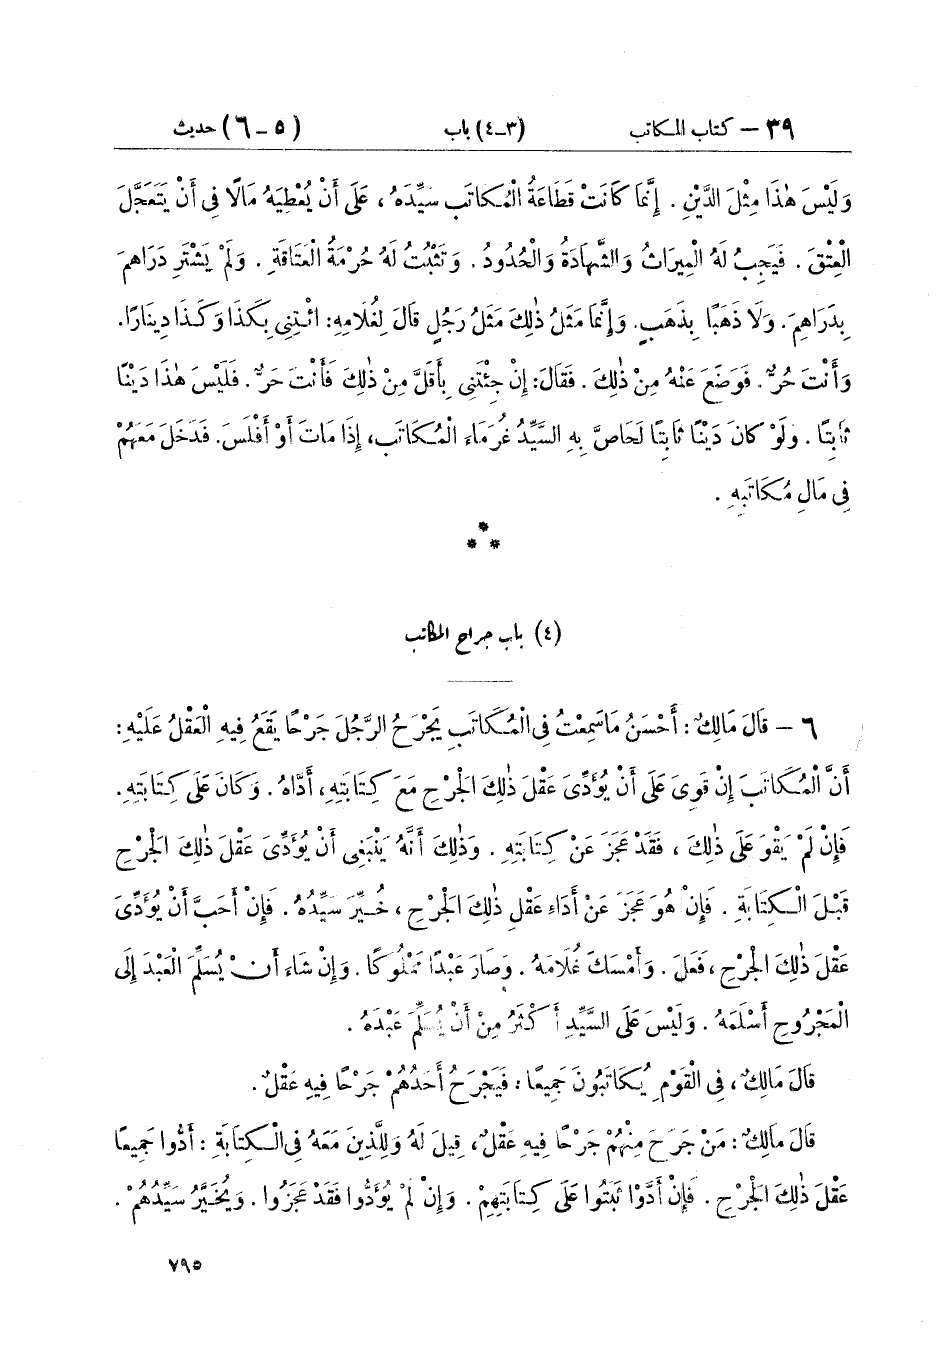 ٣٩ – كتاب المكاتب (٣-٤) باب (٥-٦) حديث
وَلَيْسَ هٰذَا مِثْلَ الدَّيْنِ . إِنَّمَا كَانَتْ قَطَاعَةُ الْمُكَاتَبِ سَيِّدَهُ ، عَلَى أَنْ يُعْطِيَهُ مَالًا فِى أَنْ يَتَعَجَّلَ
الْعِتْقَ . فَيَجِبُ لَهُ الْمِيرَاثُ وَالشَّهَادَةُ وَالْحُدُودُ . وَتَثْبُتُ لَهُ حُرْمَةُ الْعَتَاقَةِ . وَلَمْ يَشْتَرِ دَرَاهِمَ
بِدَرَاهِمَ . وَلَا ذَهَبًا بِذَهَبٍ . وَإِنَّمَا مَثَلُ ذٰلِكَ مَثَلُ رَجُلٍ قَالَ لِغُلَامِهِ : ائْتِنِى بِكَذَا وَكَذَا دِينَارًا .
وَأَنْتَ حُرٌّ . فَوَضَعَ عَنْهُ مِنْ ذٰلِكَ . فَقَالَ : إِنْ جِئْتَنِى بِأَقَلَّ مِنْ ذٰلِكَ فَأَنْتَ حُرٌّ . فَلَيْسَ هٰذَا دَيْنًا
ثَابِتًا . وَلَوْ كَانَ دَيْنًا ثَابِتًا لَحَاصَّ بِهِ السَّيِّدُ غُرَمَاءَ الْمُكَاتَبِ ، إِذَا مَاتَ أَوْ أَفْلَسَ . فَدَخَلَ مَعَهُمْ
فِى مَالِ مُكَاتَبِهِ .
* * *
(٤) باب جراح المكاتب
٦ – قَالَ مَالِكٌ : أَحْسَنُ مَا سَمِعْتُ فِى الْمُكَاتَبِ يَجْرَحُ الرَّجُلَ جَرْحًا يَقَعُ فِيهِ الْعَقْلُ عَلَيْهِ :
أَنَّ الْمُكَاتَبَ إِنْ قَوِىَ عَلَى أَنْ يُؤَدِّىَ عَقْلَ ذٰلِكَ الْجَرْحِ مَعَ كِتَابَتِهِ ، أَدَّاهُ . وَكَانَ عَلَى كِتَابَتِهِ .
فَإِنْ لَمْ يَقْوَ عَلَى ذٰلِكَ ، فَقَدْ عَجَزَ عَنْ كِتَابَتِهِ . وَذٰلِكَ أَنَّهُ يَنْبَغِى أَنْ يُؤَدِّىَ عَقْلَ ذٰلِكَ الْجَرْحِ
قَبْلَ الْكِتَابَةِ . فَإِنْ هُوَ عَجَزَ عَنْ أَدَاءِ عَقْلِ ذٰلِكَ الْجَرْحِ ، خُيِّرَ سَيِّدُهُ . فَإِنْ أَحَبَّ أَنْ يُؤَدِّىَ
عَقْلَ ذٰلِكَ الْجَرْحِ ، فَعَلَ . وَأَمْسَكَ غُلَامَهُ . وَصَارَ عَبْدًا مَمْلُوكًا . وَإِنْ شَاءَ أَنْ يُسَلِّمَ الْعَبْدَ إِلَى
الْمَجْرُوحِ أَسْلَمَهُ . وَلَيْسَ عَلَى السَّيِّدِ أَكْثَرُ مِنْ أَنْ يُسَلِّمَ عَبْدَهُ .
قَالَ مَالِكٌ ، فِى الْقَوْمِ يُكَاتَبُونَ جَمِيعًا : فَيَجْرَحُ أَحَدُهُمْ جَرْحًا فِيهِ عَقْلٌ .
قَالَ مَالِكٌ : مَنْ جَرَحَ مِنْهُمْ جَرْحًا فِيهِ عَقْلٌ ، قِيلَ لَهُ وَلِلَّذِينَ مَعَهُ فِى الْكِتَابَةِ : أَدُّوا جَمِيعًا
عَقْلَ ذٰلِكَ الْجَرْحِ . فَإِنْ أَدَّوْا ثَبَتُوا عَلَى كِتَابَتِهِمْ . وَإِنْ لَمْ يُؤَدُّوا فَقَدْ عَجَزُوا . وَيُخَيَّرُ سَيِّدُهُمْ .
٧٩٥